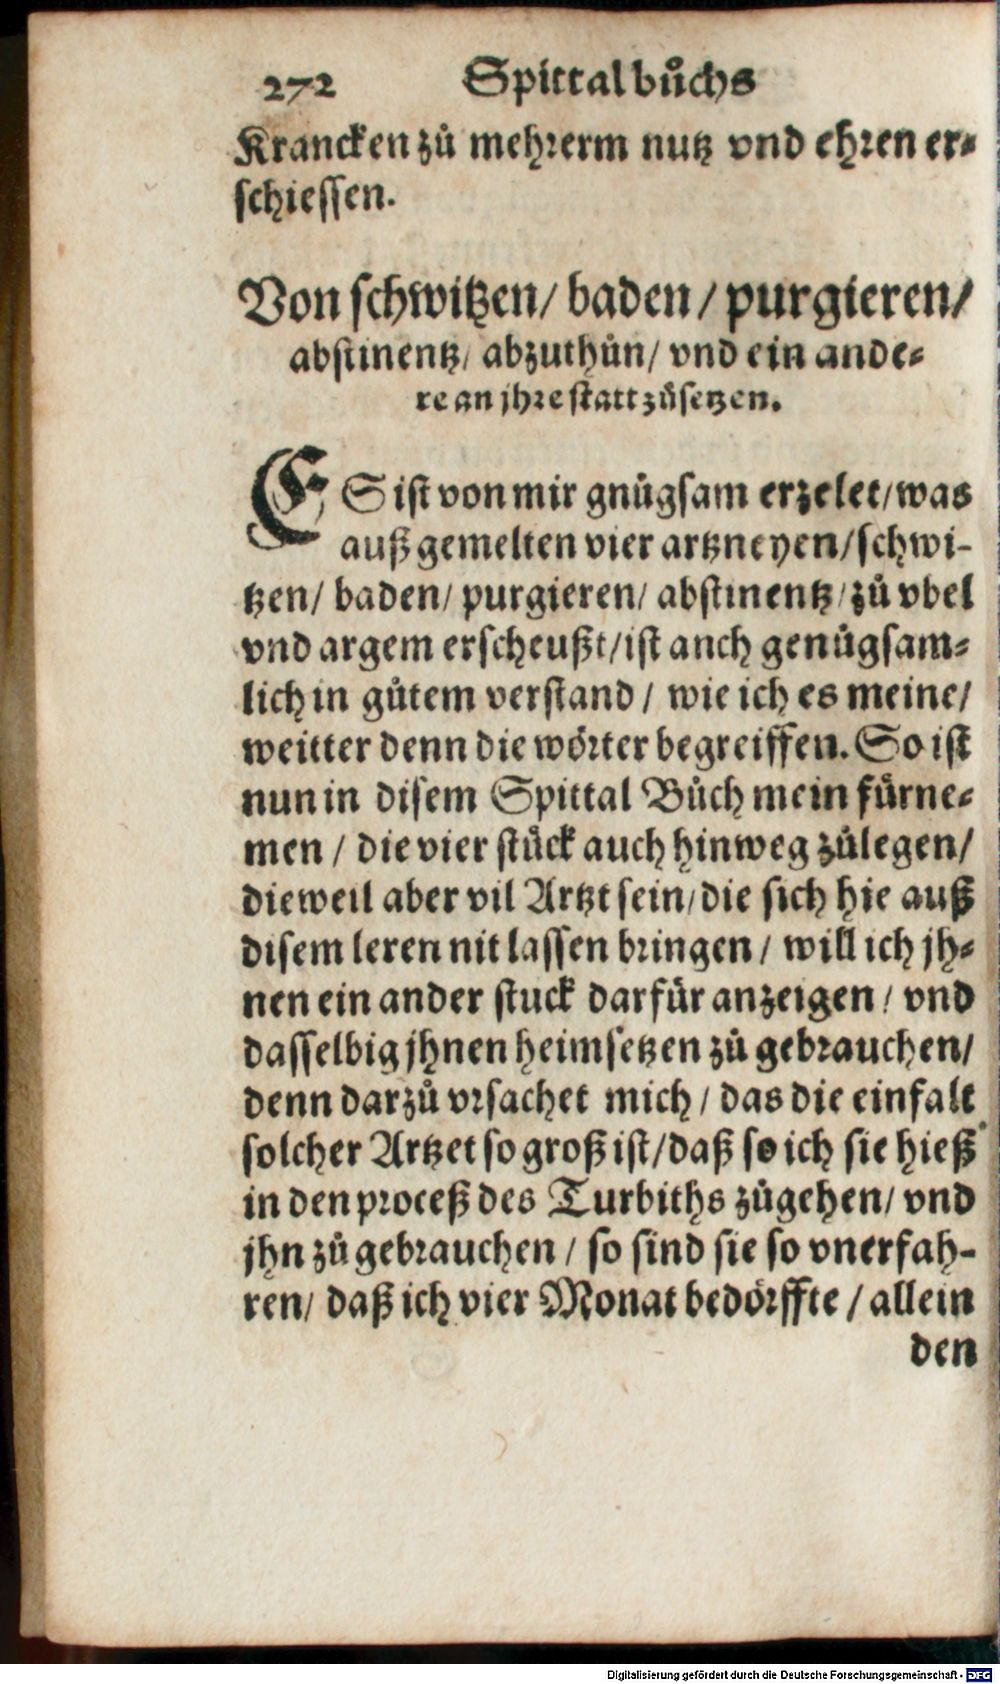 272 Spittalbuͦchs
Krancken zuͦ mehrerm nutz vnd ehren er⸗
schiessen.
Von schwitzen/ baden/ purgieren/
abstinentz/ abzuthuͦn/ vnd ein ande⸗
re an jhre statt zuͦsetzen.
ES ist von mir gnuͦgsam erzelet/ was
auß gemelten vier artzneyen/ schwi-
tzen/ baden/ purgieren/ abstinentz/ zuͦ vbel
vnd argem erscheußt/ ist anch genuͦgsam⸗
lich in guͦtem verstand/ wie ich es meine/
weitter denn die woͤrter begreiffen. So ist
nun in disem Spittal Buͦch mein fuͤrne⸗
men/ die vier stuͤck auch hinweg zuͦlegen/
dieweil aber vil Artzt sein/ die sich hie auß
disem leren nit lassen bringen/ will ich jh⸗
nen ein ander stuck darfuͤr anzeigen/ vnd
dasselbig jhnen heimsetzen zuͦ gebrauchen/
denn darzuͦ vrsachet mich/ das die einfalt
solcher Artzet so groß ist/ daß so ich sie hieß
in den proceß des Turbiths zuͦgehen/ vnd
jhn zuͦ gebrauchen/ so sind sie so vnerfah-
ren/ daß ich vier Monat bedoͤrffte/ allein
den
Digitalisierung gefördert durch die Deutsche Forschungsgemeinschaft - DFG